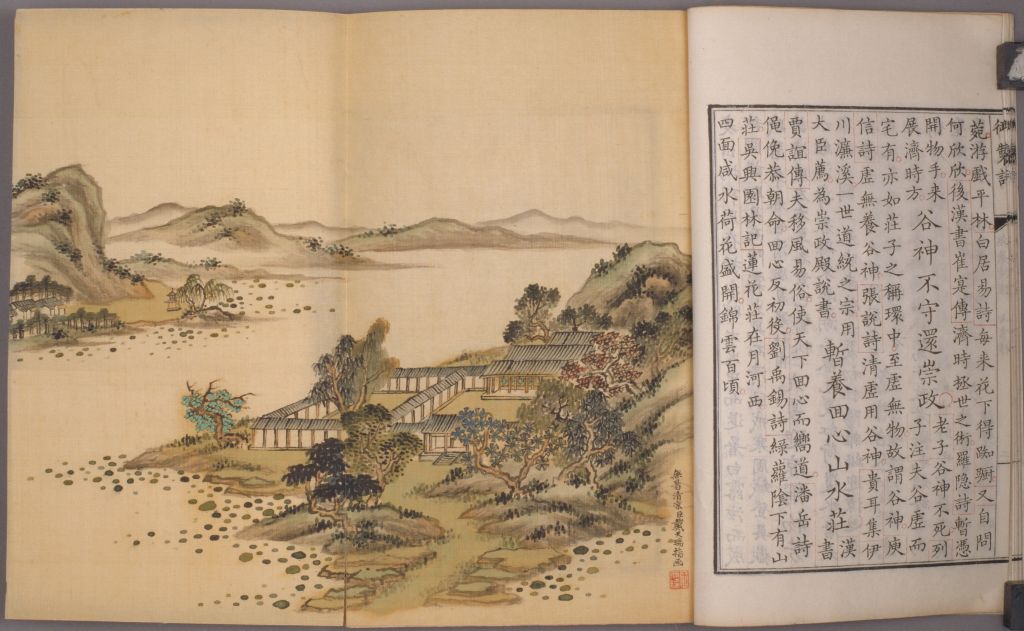 御製詩
菀游戲平林白居易詩每来花下得踟躕又自問
何欣欣後漢書崔寔傳濟時拯世之術羅隐詩暫憑
開物手来
展濟時方
谷神不守還崇政
老子谷神不死列
子注夫谷虛而
宅有亦如莊子之稱環中至虛無物故謂谷神庾
信詩虛無養谷神張說詩清虛用谷神貴耳集伊
川濂溪一世道統之宗用
大臣薦為崇政殿說書
暫養回心山水莊
漢
書
賈誼傳夫移風易俗使天下回心而嚮道潘岳詩
僶俛恭朝命回心反初役劉禹錫詩綠蘿陰下有山
莊吳興園林記蓮花莊在月河西
四面咸水荷花盛開錦雲百頃
臣戴天瑞指画